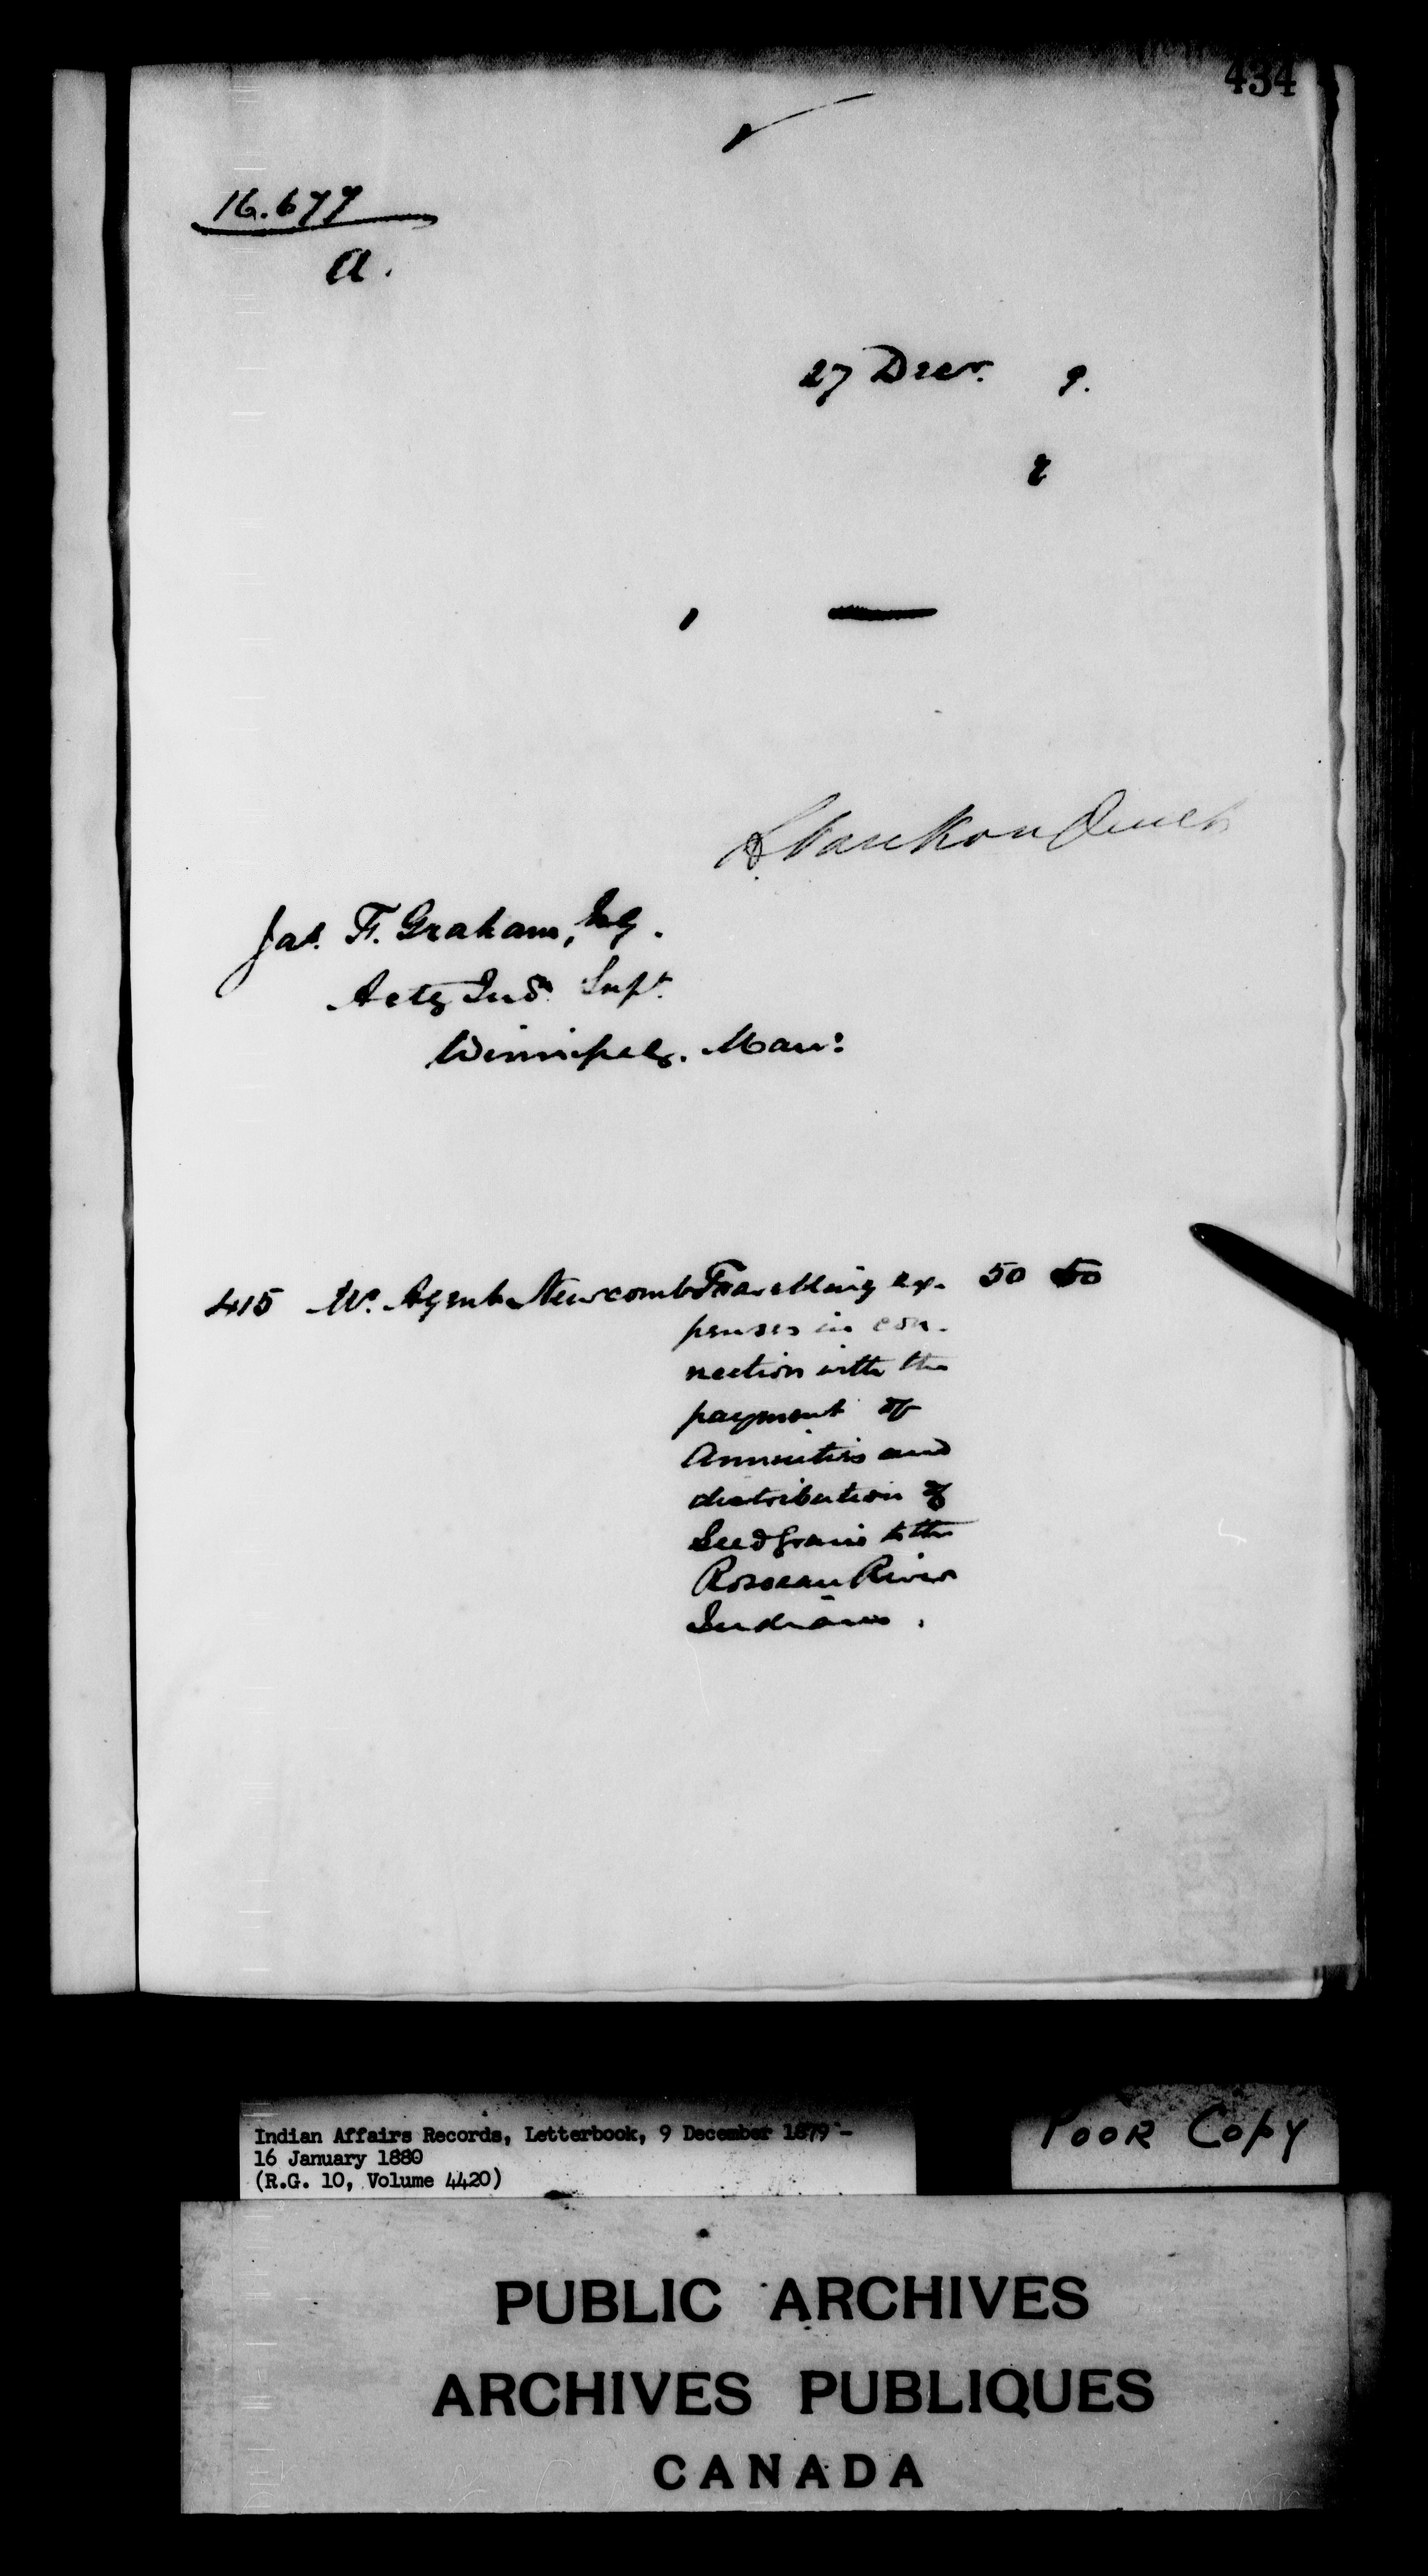 434
16.677
A.
27 Decr. 9.
L Vankoughnet
Jas. F. Graham, Esq.
Actg Ind. Supt.
Winnipeg. Man:
415 Mr. Agent Newcomb Travelling ex- 50 00
penses in con-
nection with the
payment of
Annuities and
distribution of
Seed grain to the
Roseau River
Indians.
Indian Affairs Records, Letterbook, 9 December 1879 -
16 January 1880
(R.G. 10, Volume 4420)
POOR COPY
PUBLIC ARCHIVES
ARCHIVES PUBLIQUES
CANADA